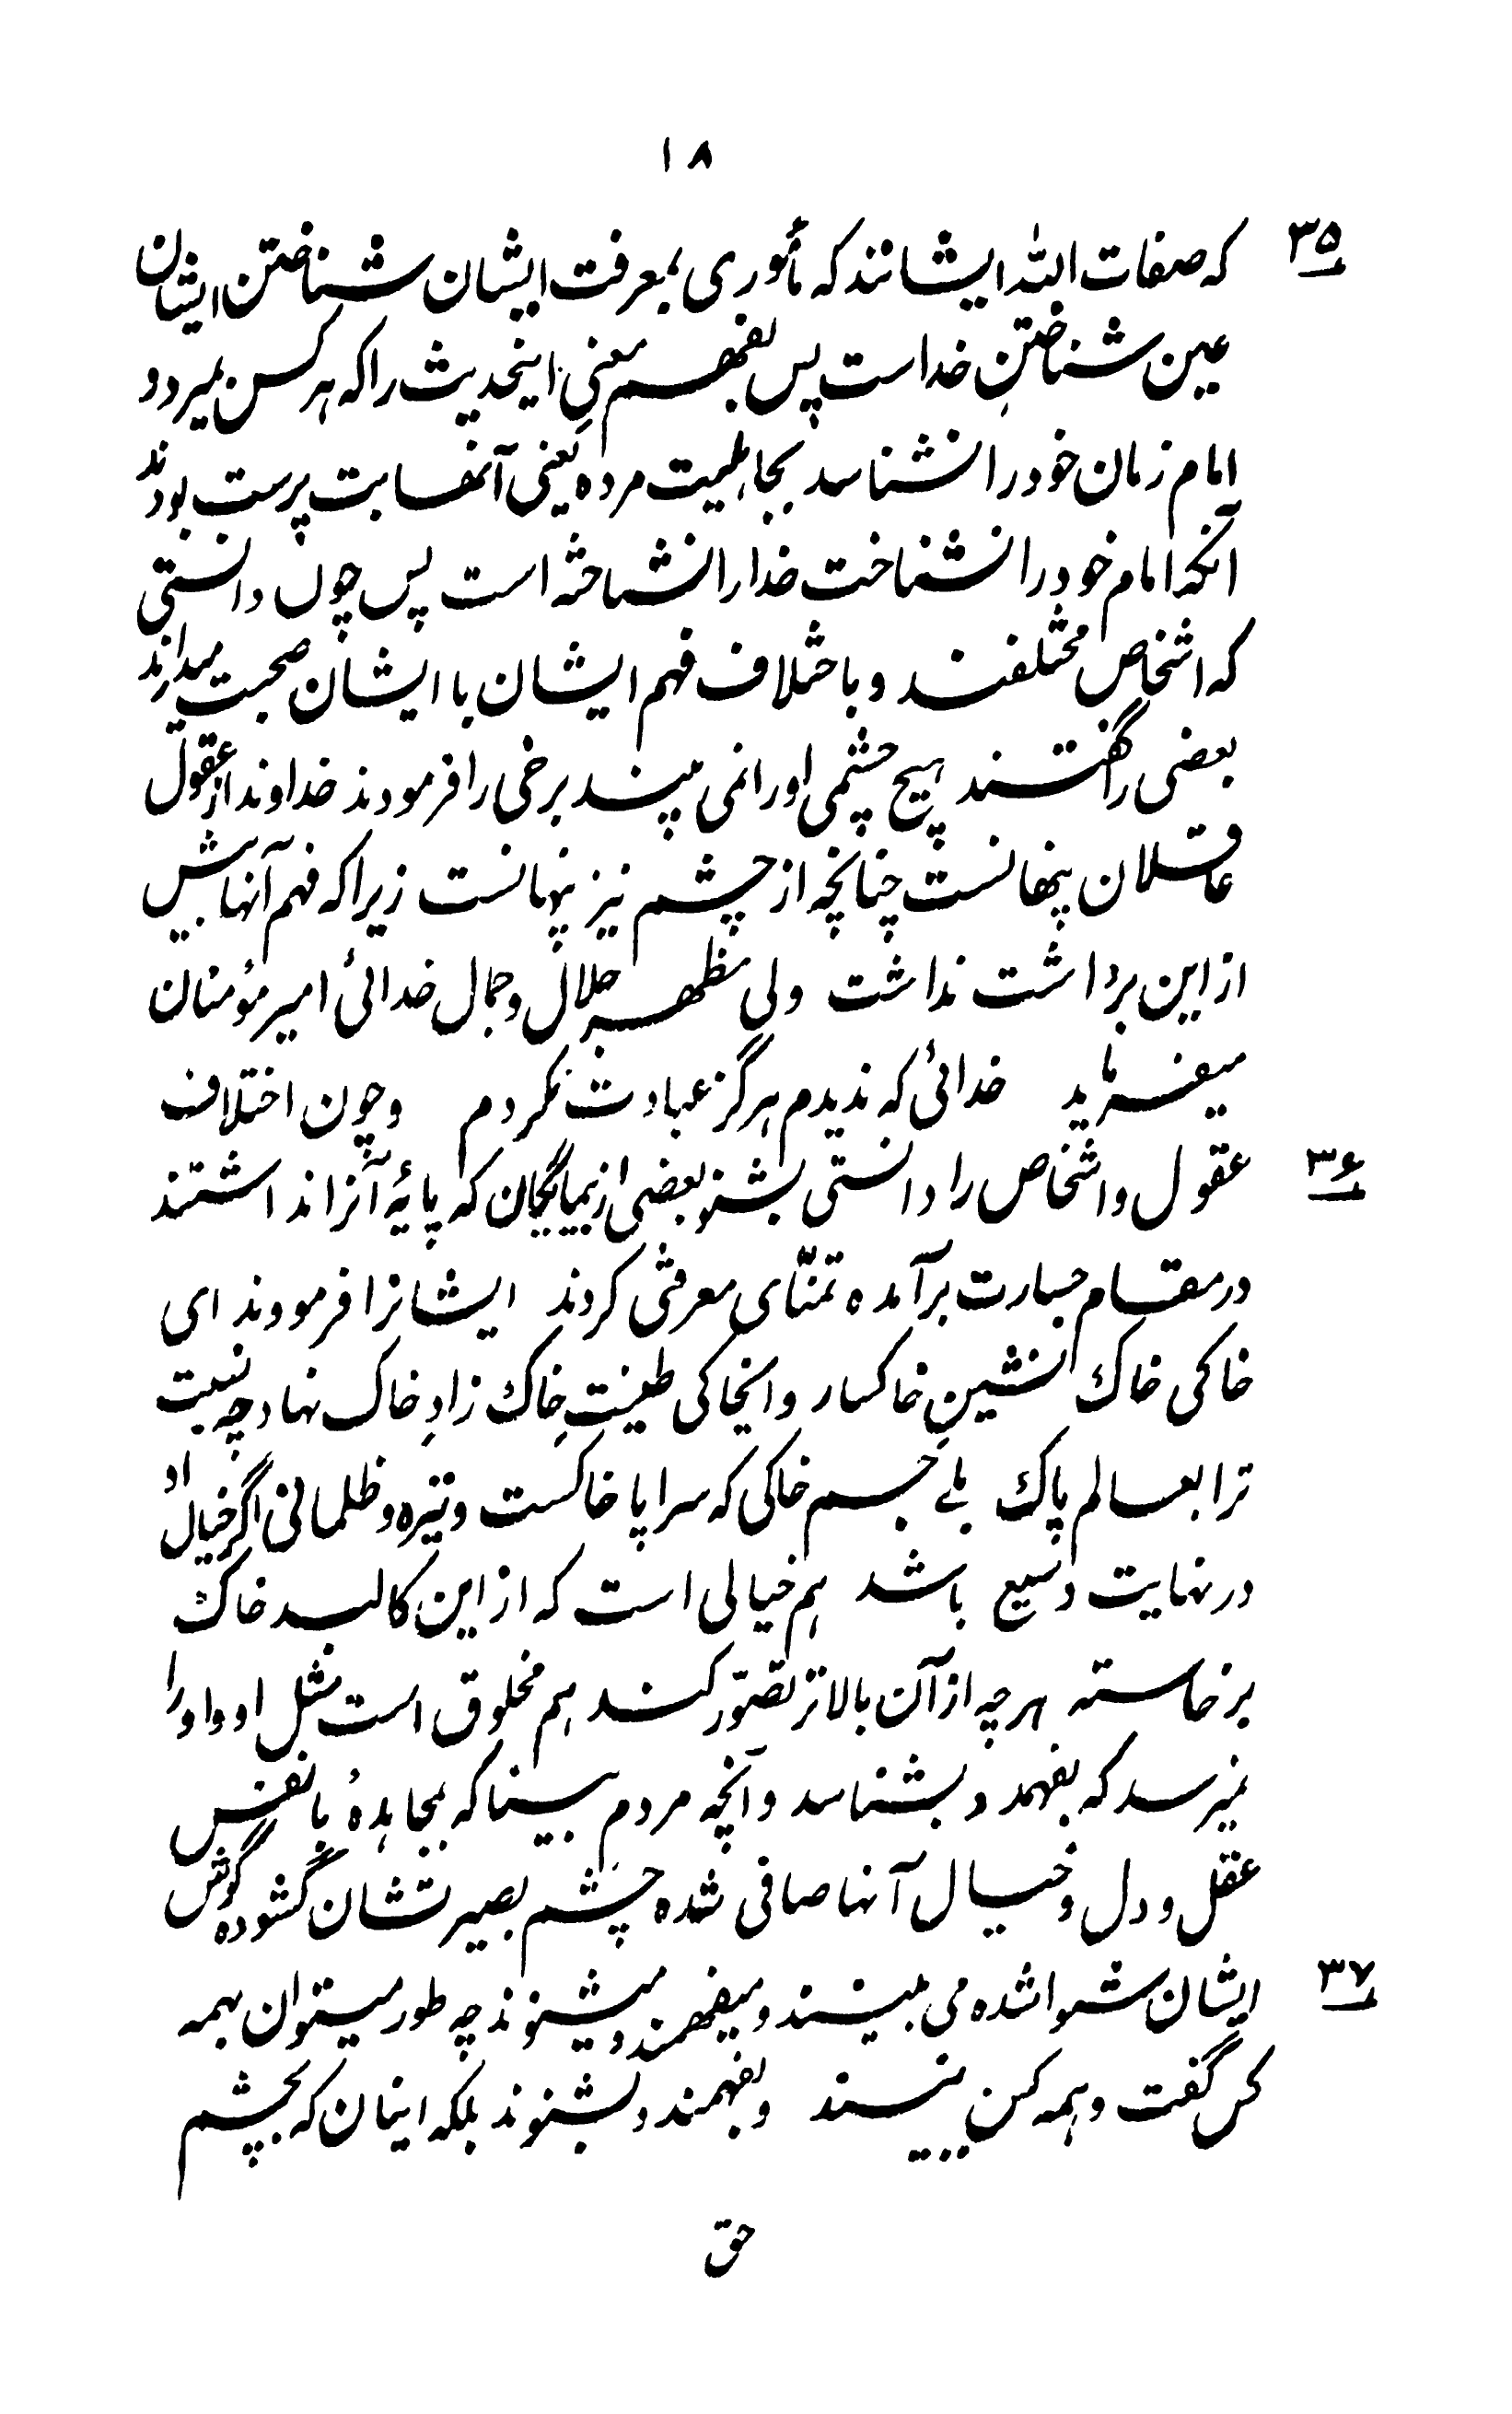 ۱۸
۳۵
که صفات الله ایشانند که مأموری بمعرفت ایشان شناختن ایشان
عین شناختنِ خداست پس بفهم معنیِ اینحدیث را که هر کس بمیرد و
امام زمان خود را نشناسد بجاهلیت مرده یعنی آنها بت پرست بودند
آنکه امام خود را نشناخت خدا را نشناخته است پس چون دانستی
که اشخاص مختلفند و باختلاف فهم ایشان با ایشان صحبت میدارند
بعضی را گفتند هیچ چشمی او را نمی بیند برخی را فرمودند خداوند از عقول
عاقلان پنهانست چنانچه از چشم نیز پنهانست زیرا که فهم آنها بیش
از این برداشت نداشت ولی مظهر جلال و جمال خدائی امیر مؤمنان
میفرماید خدائی که ندیدم هرگز عبادت نکردم و چون اختلاف
۳۶
عقول و اشخاص را دانستی بشنو بعضی از بیمایگان که پایۀ آنرا نداشتند
در مقام جسارت برآمده تمنّای معرفتی کردند ایشانرا فرمودند ای
خاکی خاک نشینِ خاکسار و ایخاکی طینتِ خاک زادِ خاک نهاد چه نسبت
ترا بعالم پاک بلے جسم خاکی که سراپا خاکست و تیره و ظلمانی اگر خیال او
در نهایت وسیع باشد هم خیالی است که از این کالبد خاک
برخاسته هر چه از آن بالاتر تصوّر کند هم مخلوق است مثل او و او را
نمیرسد که بفهمد و بشناسد و آنچه مردم بینا که بمجاهدۀ با نفس
عقل و دل و خیال آنها صافی شده چشم بصیرتشان گشوده گوش
۳۷
ایشان شنوا شده می بینند و میفهمند و میشنوند چه طور میتوان بهمه
کس گفت و همه کس ببینند و بفهمند و بشنوند بلکه اینان که بچشم
حق